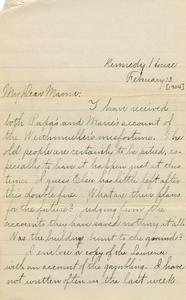 Kennedy House
February 13
[1904]
My Dear Mama:
I have received
both Papa's and Marie's account of
the Weithmueller's misfortune. The
old people are certainly to be pitied, es-
pecially to have it happen just at this
time. I guess Elsie has little left after
this double fire. What are their plans
for the future? Judging from the
accounts they have saved nothing at all
Was the building burnt to the ground?
I enclose a copy of the Lawrence
with an account of the gambling. I have
not written often in the last week